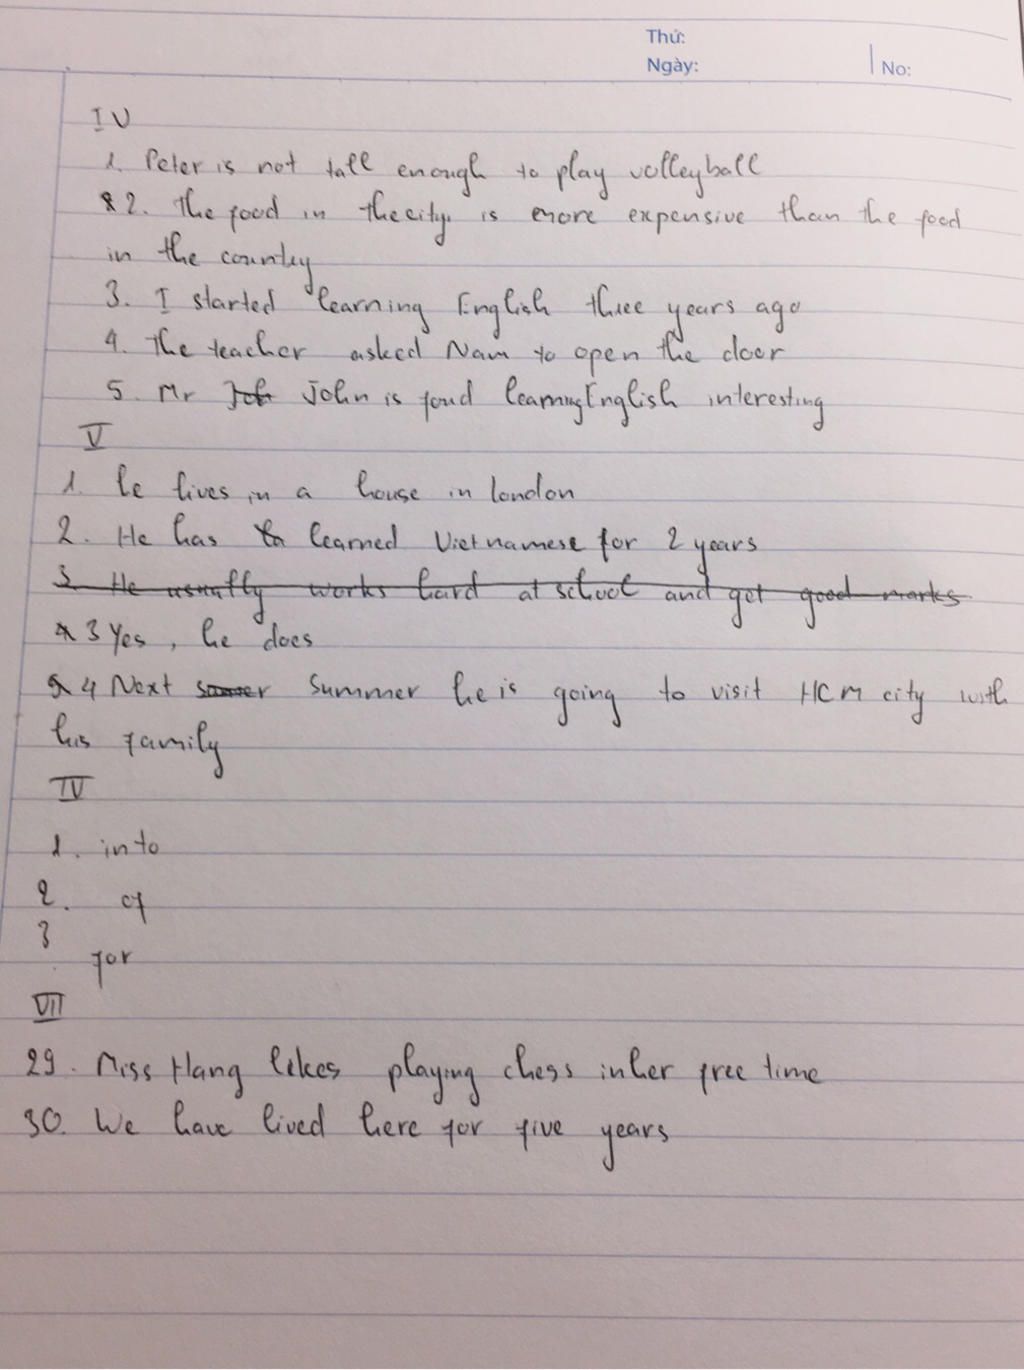 Thứ:
Ngày:
No:
IV
1. Peter is not tall enough to play volleyball
2. The food in the city is more expensive than the food
in the country
3. I started learning English three years ago
4. The teacher asked Nam to open the door
5. Mr John is foud learning English interesting
V
1. he lives in a house in london
2. He has learned Vietnamese for 2 years
3. He usually works hard at school and get good marks
3 Yes, he does
4 Next summer he is going to visit HCM city with
his family
IV
1. into
2. of
3
for
VII
29. Miss Hang likes playing chess in her free time
30. We have lived here for five years